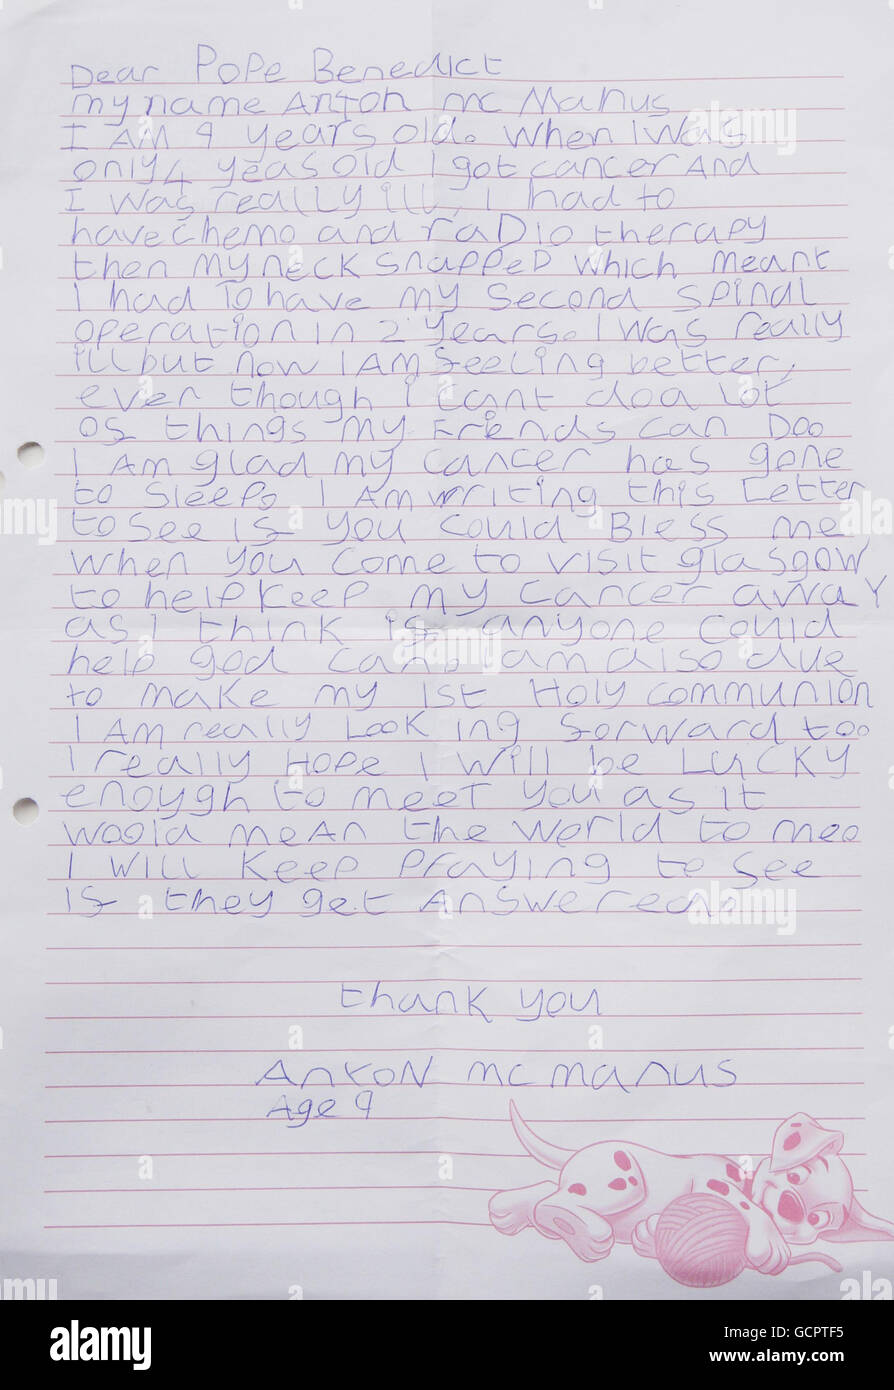 Dear Pope Benedict
my name Anton mc Manus
I AM 9 years old. When I was
only 4 yeas old I got cancer And
I was really ill, I had to
have chemo and radio therapy
then my neck snapped which meant
I had To have my second spinal
operation in 2 years. I was really
ill but now I AM feeling better,
even though i cant do a lot
of things my Friends can Do.
I AM glad my cancer has gone
to sleep. I AM writing this Letter
to see if you could Bless me
when you come to visit glasgow
to help keep my cancer away
as I think if anyone could
help god can. I am also due
to make my 1st Holy communion
I AM really Looking forward too.
I really Hope I will be Lucky
enough to meet you as it
woold mean the world to me.
I will keep praying to see
if they get answered.
thank you
Anton mc manus
Age 9
alamy
Image ID: GCPTF5
www.alamy.com